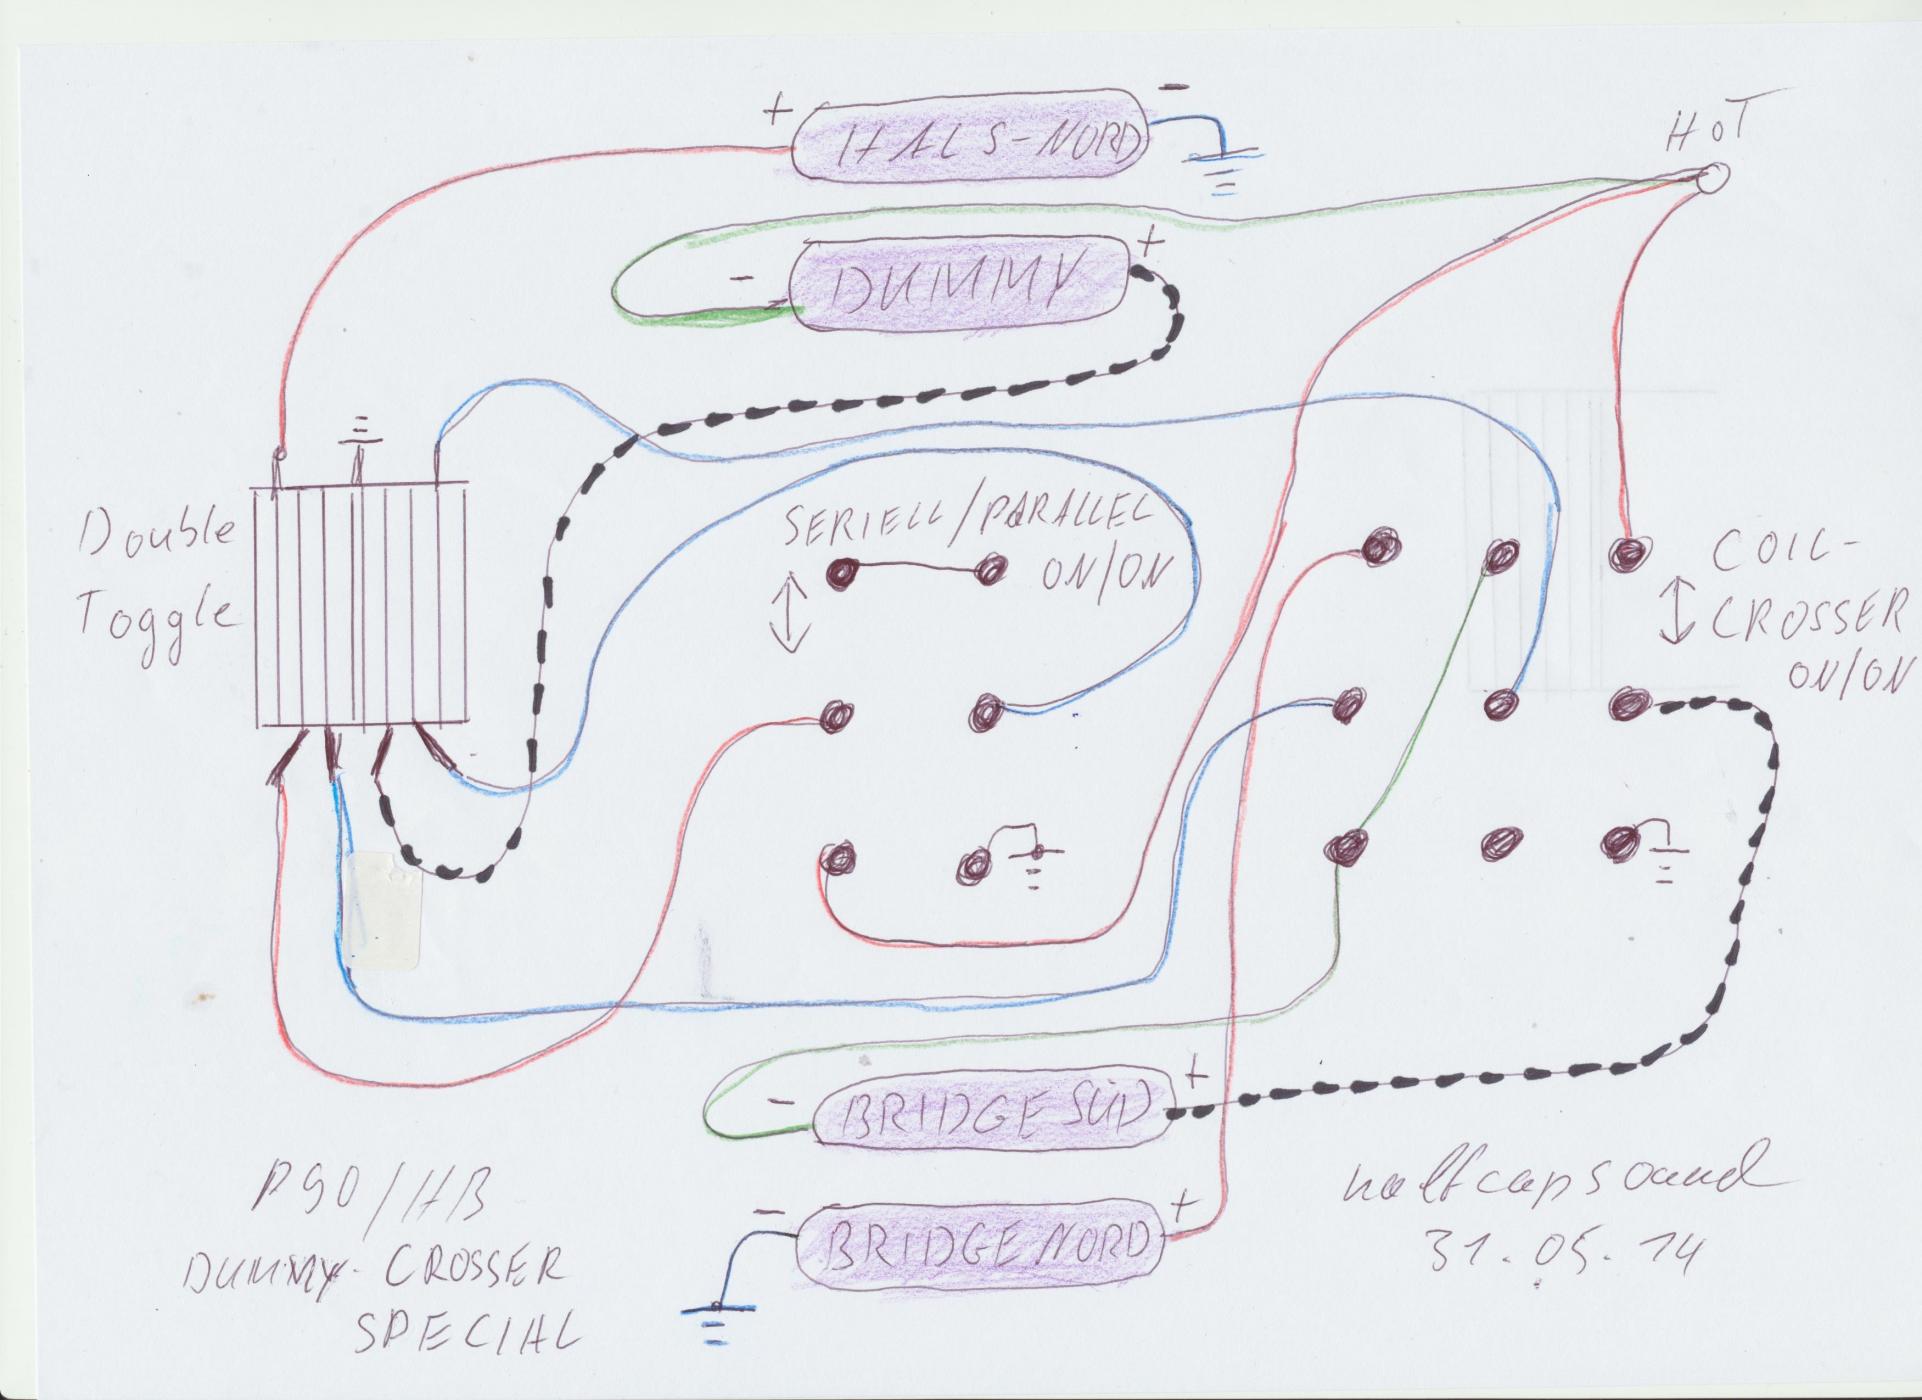 + HALS-NORD -
HOT
- DUMMY +
Double
Toggle
SERIELL/PARALLEL
ON/ON
COIL-
CROSSER
ON/ON
- BRIDGE SÜD +
- BRIDGE NORD +
P90/HB
DUMMY-CROSSER
SPECIAL
halfcapsound
31.05.14